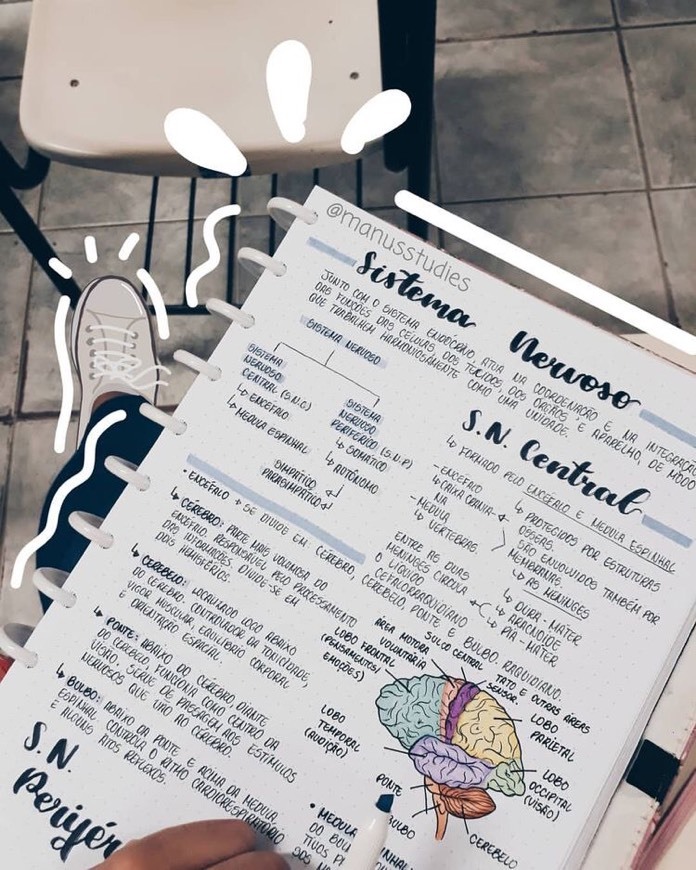 @manusstudies
Sistema Nervoso
JUNTO COM O SISTEMA ENDÓCRINO ATUA NA COORDENAÇÃO E NA INTEGRAÇÃO
DAS FUNÇÕES DAS CÉLULAS DOS TECIDOS, DOS ÓRGÃOS E APARELHO, DE MODO
QUE TRABALHEM HARMONIOSAMENTE COMO UMA UNIDADE.
SISTEMA NERVOSO
SISTEMA
NERVOSO
CENTRAL (S.N.C)
↳ ENCÉFALO
↳ MEDULA ESPINHAL
SISTEMA
NERVOSO
PERIFÉRICO (S.N.P)
↳ SOMÁTICO
↳ AUTÔNOMO
SIMPÁTICO
PARASIMPÁTICO
S.N. Central
↳ FORMADO PELO ENCÉFALO E MEDULA ESPINHAL
- ENCÉFALO
↳ CAIXA CRANIANA
- MEDULA
↳ VERTEBRAS
↳ PROTEGIDOS POR ESTRUTURAS
ÓSSEAS.
SÃO ENVOLVIDOS TAMBÉM POR
MEMBRANAS
↳ AS MENINGES
↳ DURA-MÁTER
↳ ARACNÓIDE
↳ PIA-MÁTER
ENTRE AS DUAS
MENINGES CIRCULA
O LÍQUIDO
CEFALORRAQUIDIANO
• ENCÉFALO → SE DIVIDE EM CÉREBRO, CEREBELO, PONTE E BULBO. RAQUIDIANO.
↳ CÉREBRO: PARTE MAIS VOLUMOSA DO
ENCÉFALO. RESPONSÁVEL PELO PROCESSAMENTO
DAS INFORMAÇÕES. DIVIDE-SE EM
DOIS HEMISFÉRIOS.
↳ CEREBELO: LOCALIZADO LOGO ABAIXO
DO CÉREBRO, CONTROLADOR DA TONICIDADE,
VIGOR MUSCULAR, EQUILÍBRIO CORPORAL
E ORIENTAÇÃO ESPACIAL.
↳ PONTE: ABAIXO DO CÉREBRO, DIANTE
DO CEREBELO, FUNCIONA COMO CENTRO DA
VISÃO, SERVE DE PASSAGEM AOS ESTÍMULOS
NERVOSOS QUE VÃO AO CÉREBRO.
↳ BULBO: ABAIXO DA PONTE E ACIMA DA MEDULA
ESPINHAL CONTROLA O RITMO CARDIORESPIRATÓRIO
E ALGUNS ATOS REFLEXOS.
ÁREA MOTORA
VOLUNTÁRIA
SULCO CENTRAL
TATO E OUTRAS ÁREAS
SENSOR.
LOBO FRONTAL
(PENSAMENTOS/
EMOÇÕES)
LOBO
PARIETAL
LOBO
TEMPORAL
(AUDIÇÃO)
LOBO
OCCIPITAL
(VISÃO)
PONTE
BULBO
CEREBELO
S.N.
Perifér
• MEDULA